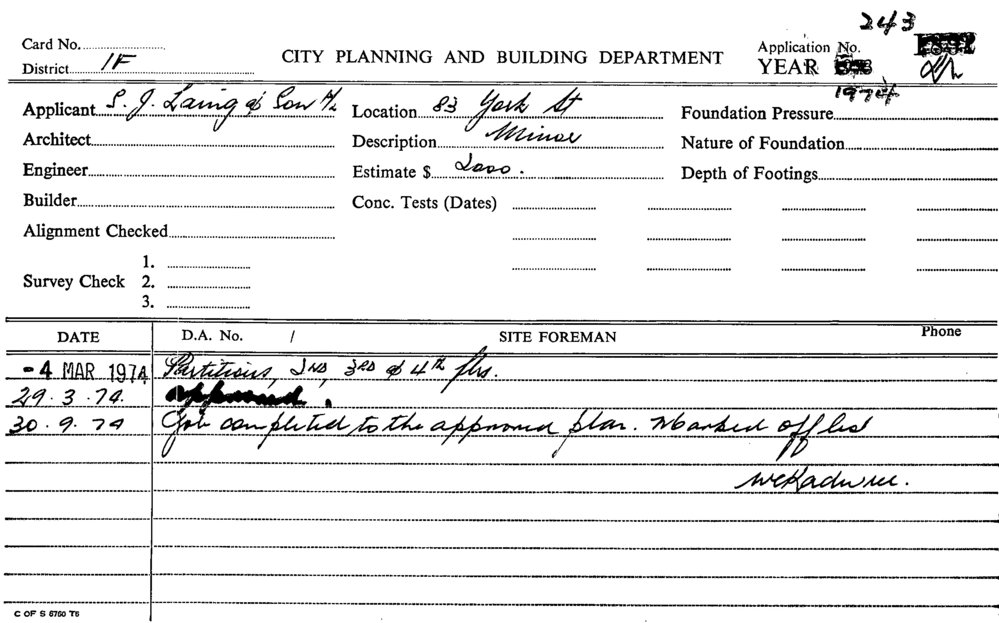 243
Card No.
CITY PLANNING AND BUILDING DEPARTMENT
Application No.
District 1F
YEAR
1974
Applicant S. J. Laing & Son
Location 83 York St
Foundation Pressure
Architect
Description Minor
Nature of Foundation
Engineer
Estimate $ 2000.
Depth of Footings
Builder
Conc. Tests (Dates)
Alignment Checked
Survey Check 1.
2.
3.
DATE D.A. No. / SITE FOREMAN Phone
-4 MAR 1974 Partitions, 2ND, 3RD & 4TH flrs.
29.3.74. approved.
30.9.74 Job completed to the approved plan. Marked off list
C OF S 6760 T6